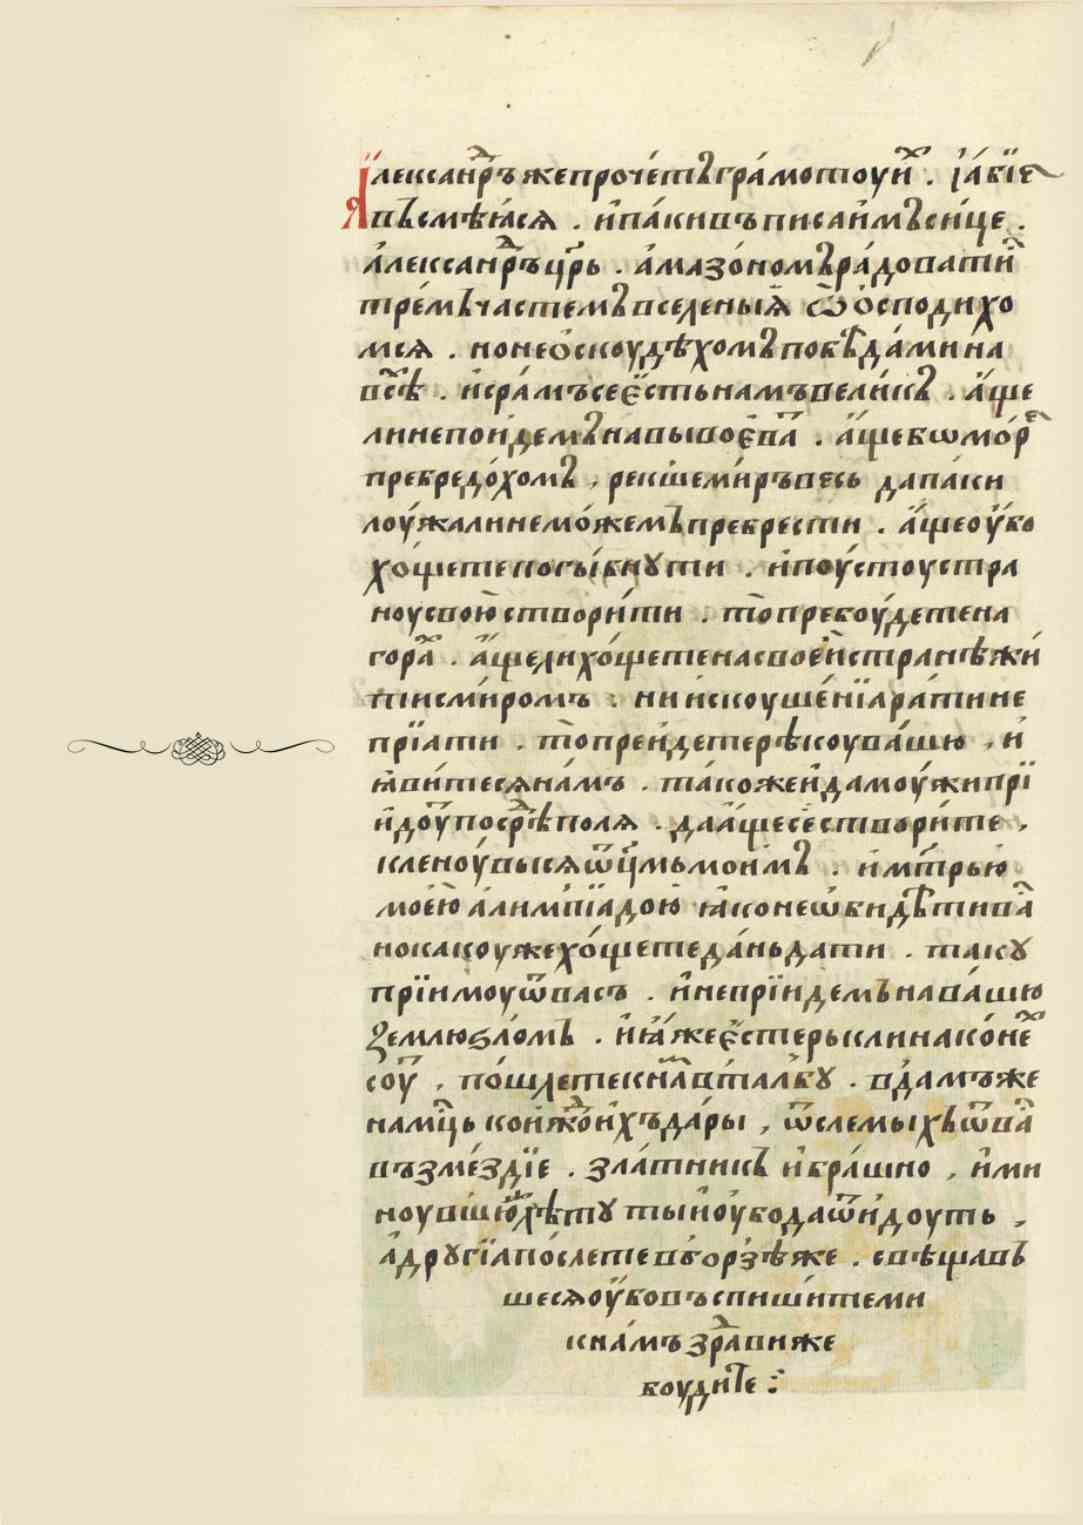 Алеѯанⷣръ же прочетъ грамотоу иⷯ . ꙗ абїе
въсмѣꙗся . и паки въписа имъ сице .
александⷬъ црⷭь . амазономъ радоватиⷭ
тремъ частемъ вселеныꙗ ѿ осподихо
мся . но не оскоудѣхомъ побѣдами на
всⷯѣ . и срамъ се есть намъ великъ . аще
ли не поидемъ на вы воеваⷮ . аще бѡ мореⷭ
пребредохомъ , рекше миръ весь да паки
лоужа ли не можемъ пребрести . аще оубо
хощете погыбнꙋти . и поустоу стра
ноу свою створити . то пребоудете на
гораⷯ . аще ли хощете на своеи странѣ жи
ти с миром . ни искоушенїа рати не
прїати . то преидете рѣкоу вашю , и
ꙗвитеся намъ . такоже и да моужи прїи
идоуⷮ посрⷣѣ поля . да аще се створите ,
кленоу вы ся ѿцⷭмь моимъ . и мтⷭрью
моею алимпїадою ꙗко не ѡбидѣти ваⷭ
но какоу же хощете дань дати . такꙋ
прїимоу ѿ васъ . и не прїидемъ на вашю
землю ѕломъ . и ꙗже естерькли на конеⷯ
соуⷮ , пошлете к наⷨ в талкꙋ . вдамъ же
на мцⷭь коиⷤдо ихъ дары , ѿслемыхъ ѿ ваⷭ
възмездїе . златникъ и брашно , и ми
ноувшю лѣтꙋ тыи оубо да ѿидоуть ,
а дрꙋгїа послете вборзѣже . свѣщавъ
шеся оубо въспишите ми
к намъ здрави же
боудите :